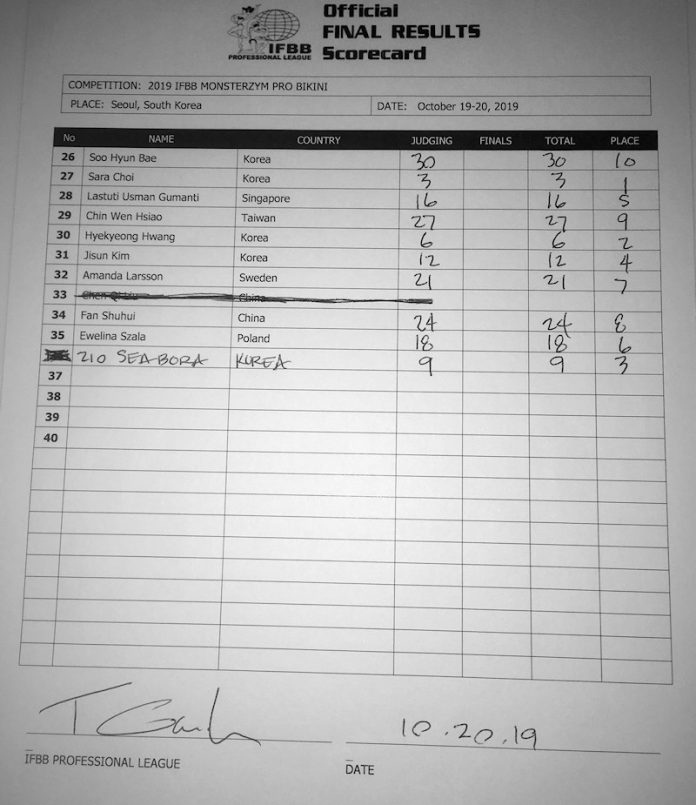 Official
FINAL RESULTS
Scorecard
IFBB
PROFESSIONAL LEAGUE
COMPETITION: 2019 IFBB MONSTERZYM PRO BIKINI
PLACE: Seoul, South Korea DATE: October 19-20, 2019
No NAME COUNTRY JUDGING FINALS TOTAL PLACE
26 Soo Hyun Bae Korea 30 30 10
27 Sara Choi Korea 3 3 1
28 Lastuti Usman Gumanti Singapore 16 16 5
29 Chin Wen Hsiao Taiwan 27 27 9
30 Hyekyeong Hwang Korea 6 6 2
31 Jisun Kim Korea 12 12 4
32 Amanda Larsson Sweden 21 21 7
33 China
34 Fan Shuhui China 24 24 8
35 Ewelina Szala Poland 18 18 6
210 SEABORA KOREA 9 9 3
37
38
39
40
10.20.19
IFBB PROFESSIONAL LEAGUE DATE